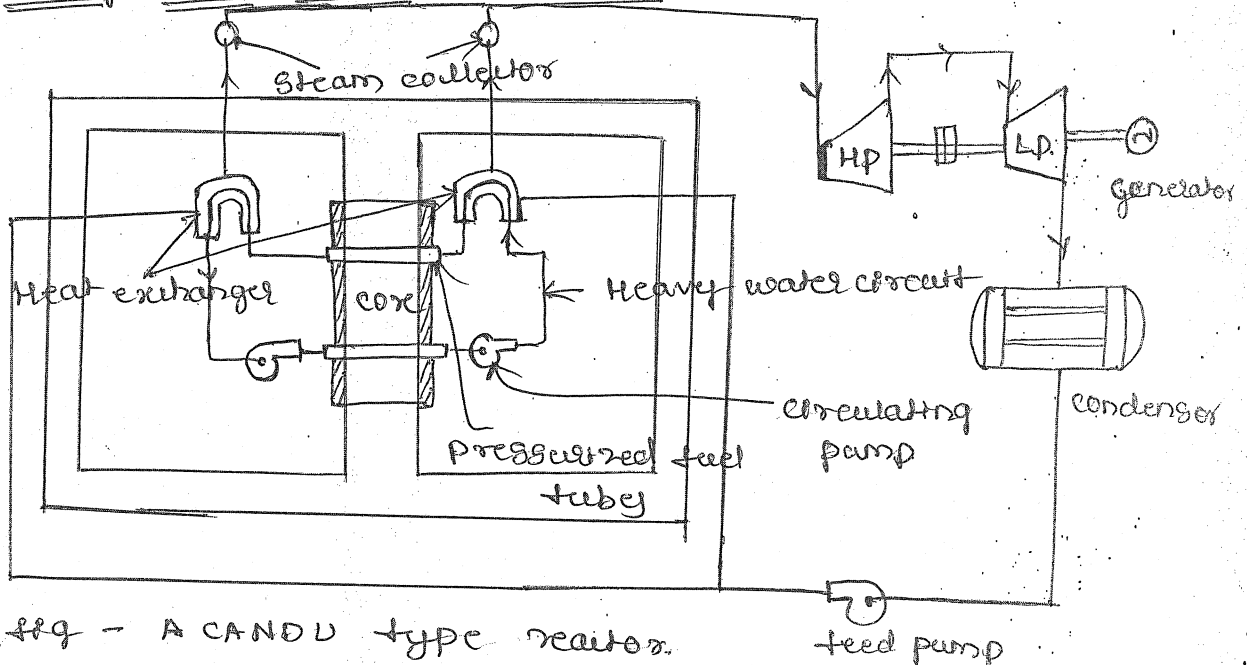 Steam collector
HP
LP.
generator
Heat exchanger
core
Heavy water circuit
condenser
circulating
pump
Pressurized fuel
tubes
fig - A CANDU type reactor.
feed pump